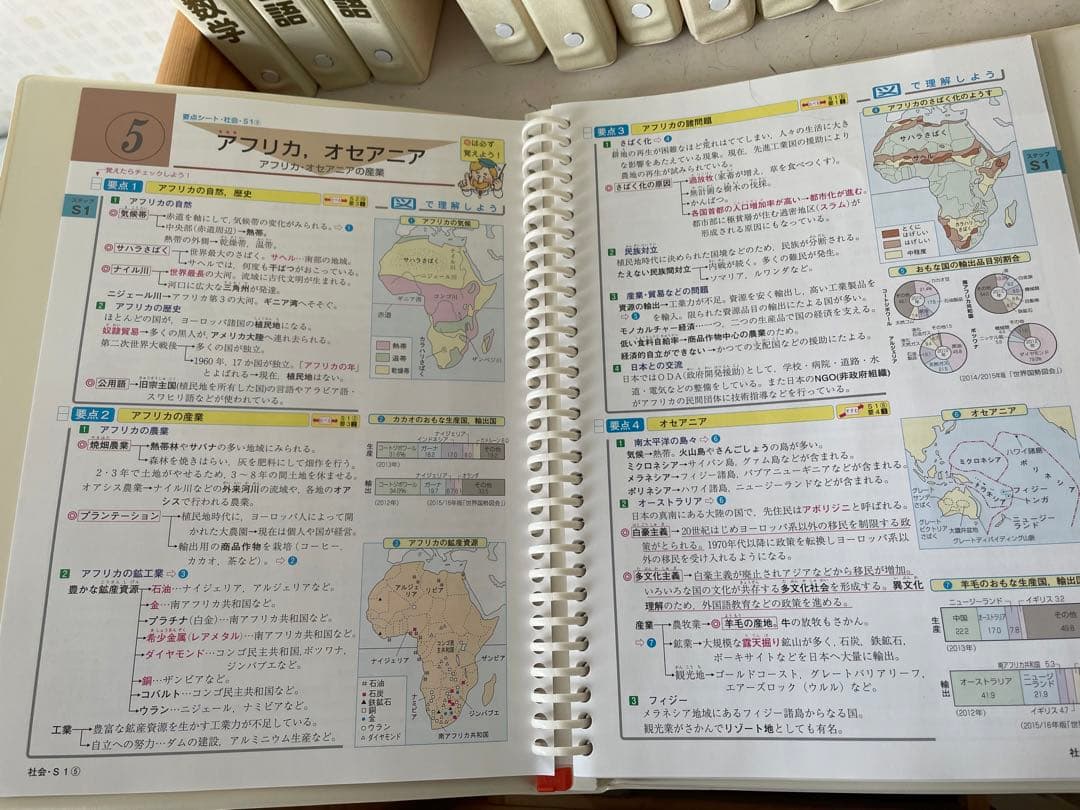 数学
語
語
5
要点シート・社会・S1⑤
アフリカ，オセアニア
アフリカ・オセアニアの産業
◎は必ず
覚えよう！
覚えたらチェックしよう！
ステップ
S1
要点1 アフリカの自然，歴史
図で理解しよう
1 アフリカの自然
◎気候帯→赤道を軸にして，気候帯の変化がみられる。→①
中央部(赤道周辺)→熱帯。
熱帯の外側→乾燥帯，温帯。
◎サハラさばく→世界最大のさばく。サヘル…南部の地域。
サヘルでは，何度も干ばつがおこっている。
◎ナイル川→世界最長の大河。流域に古代文明が生まれる。
河口に広大な三角州が発達。
ニジェール川→アフリカ第3の大河。ギニア湾へそそぐ。
2 アフリカの歴史
ほとんどの国が，ヨーロッパ諸国の植民地になる。
奴隷貿易→多くの黒人が，アメリカ大陸へ連れ去られる。
第二次世界大戦後→多くの国が独立。
1960年，17か国が独立。「アフリカの年」
とよばれる→現在，植民地はない。
◎公用語→旧宗主国(植民地を所有した国)の言語やアラビア語・
スワヒリ語などが使われている。
① アフリカの気候
サハラさばく
ナイル川
ニジェール川
ギニア湾
コンゴ川
赤道
カラハリさばく
ザンベジ川
熱帯
温帯
乾燥帯
要点2 アフリカの産業
1 アフリカの農業
◎焼畑農業→熱帯林やサバナの多い地域にみられる。
森林を焼きはらい，灰を肥料にして畑作を行う。
2・3年で土地がやせるため，3～8年の間土地を休ませる。
オアシス農業→ナイル川などの外来河川の流域や，各地のオア
シスで行われる農業。
◎プランテーション→植民地時代に，ヨーロッパ人によって開
かれた大農園→現在は個人や国が経営。
輸出用の商品作物を栽培(コーヒー，
カカオ，茶など)。→②
2 アフリカの鉱工業→③
豊かな鉱産資源→石油…ナイジェリア，アルジェリアなど。
金…南アフリカ共和国など。
プラチナ(白金)…南アフリカ共和国など。
希少金属(レアメタル)…南アフリカ共和国など。
ダイヤモンド…コンゴ民主共和国，ボツワナ，
ジンバブエなど。
銅…ザンビアなど。
コバルト…コンゴ民主共和国など。
ウラン…ニジェール，ナミビアなど。
工業→豊富な鉱産資源を生かす工業力が不足している。
自立への努力…ダムの建設，アルミニウム生産など。
社会・S1⑤
② カカオのおもな生産国，輸出国
生産
ナイジェリア
インドネシア
カメルーン
コートジボワール
ガーナ
その他
(2013年)
輸出
ナイジェリア
オランダ
コートジボワール
ガーナ
その他
(2012年)
(2015/16年版「世界国勢図会」)
③ アフリカの鉱産資源
アルジェリア
リビア
コンゴ民主共和国
ナイジェリア
ザンビア
ナミビア
ジンバブエ
南アフリカ共和国
石油
石炭
鉄鉱石
銅
金
ウラン
ダイヤモンド
要点3 アフリカの諸問題
図で理解しよう
1 さばく化→④
耕地の再生が困難なほど荒れはててしまい，人々の生活に大き
な影響をあたえている現象。現在，先進工業国の援助により
農地の再生が試みられている。
◎さばく化の原因→過放牧(家畜が増え，草を食べつくす)。
無計画な樹木の伐採。
かんばつ。
各国首都の人口増加率が高い→都市化が進む。
都市部に極貧層が住む過密地区(スラム)が
形成される原因にもなっている。
2 民族対立
植民地時代に決められた国境などのため，民族が分断される。
たえない民族間対立→内戦が続く。多くの難民が発生。
ソマリア，ルワンダなど。
3 産業・貿易などの問題
資源の輸出→工業力が不足。資源を安く輸出し，高い工業製品を
→⑤ を輸入。限られた資源品目の輸出にたよる国が多い。
モノカルチャー経済……一つ，二つの生産品で国の経済を支える。
低い食料自給率→商品作物中心の農業のため。
経済的自立ができない→かつての支配国などの援助にたよる。
4 日本との交流
日本ではODA(政府開発援助)として，学校・病院・道路・水
道・電気などの整備をしている。また日本のNGO(非政府組織)
がアフリカの民間団体に技術指導などを行っている。
④ アフリカのさばく化のようす
サハラさばく
サヘル
カラハリさばく
とくにはげしい
はげしい
中程度
ステップ
S1
⑤ おもな国の輸出品目別割合
コートジボワール
南アフリカ共和国
アルジェリア
ボツワナ
(2014/2015年版「世界国勢図会」)
要点4 オセアニア
1 南太平洋の島々→⑥
気候→熱帯。火山島やさんごしょうの島が多い。
ミクロネシア→サイパン島，グアム島などが含まれる。
メラネシア→フィジー諸島，パプアニューギニアなどが含まれる。
ポリネシア→ハワイ諸島，ニュージーランドなどが含まれる。
2 オーストラリア→⑥
日本の真南にある大陸の国で，先住民はアボリジニと呼ばれる。
◎白豪主義→20世紀はじめヨーロッパ系以外の移民を制限する政
策がとられる。1970年代以降に政策を転換しヨーロッパ系以
外の移民を受け入れるようになる。
◎多文化主義→白豪主義が廃止されアジアなどから移民が増加。
いろいろな国の文化が共存する多文化社会を形成する。異文化
理解のため，外国語教育などの政策を進める。
産業→農牧業→◎羊毛の産地。牛の放牧もさかん。
→⑦ 鉱業→大規模な露天掘り鉱山が多く，石炭，鉄鉱石，
ボーキサイトなどを日本へ大量に輸出。
観光地→ゴールドコースト，グレートバリアリーフ，
エアーズロック（ウルル）など。
3 フィジー
メラネシア地域にあるフィジー諸島からなる国。
観光業がさかんでリゾート地としても有名。
⑥ オセアニア
ミクロネシア
ハワイ諸島
ポリネシア
メラネシア
フィジー
トンガ
グレートビクトリアさばく
大鑽井盆地
ニュージーランド
グレートディバイディング山脈
⑦ 羊毛のおもな生産国，輸出国
生産
ニュージーランド
イギリス 3.2
中国 22.2
オーストラリア 17.0
7.8
その他 49.8
(2013年)
輸出
南アフリカ共和国 5.3
オーストラリア 41.9
ニュージーランド 21.9
イギリス 4.7
(2012年)
(2015/16年版「世界
社会・S1⑤